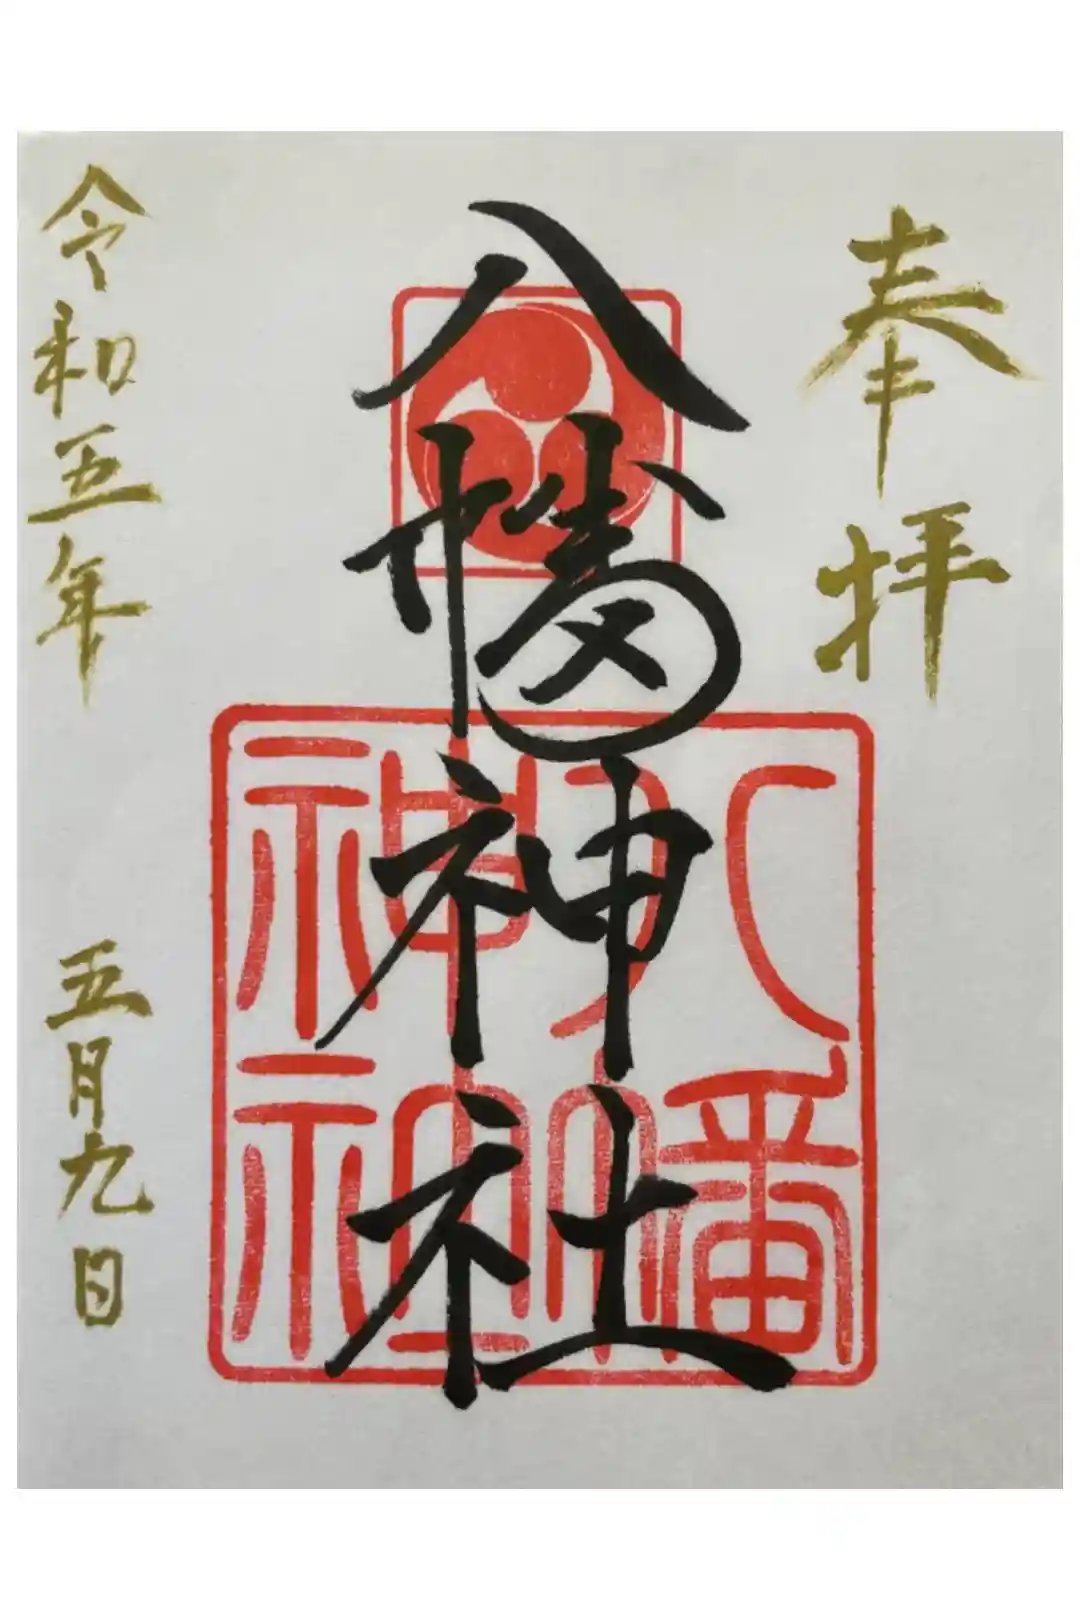 奉拝
八幡神社
八幡神社
令和五年 五月九日